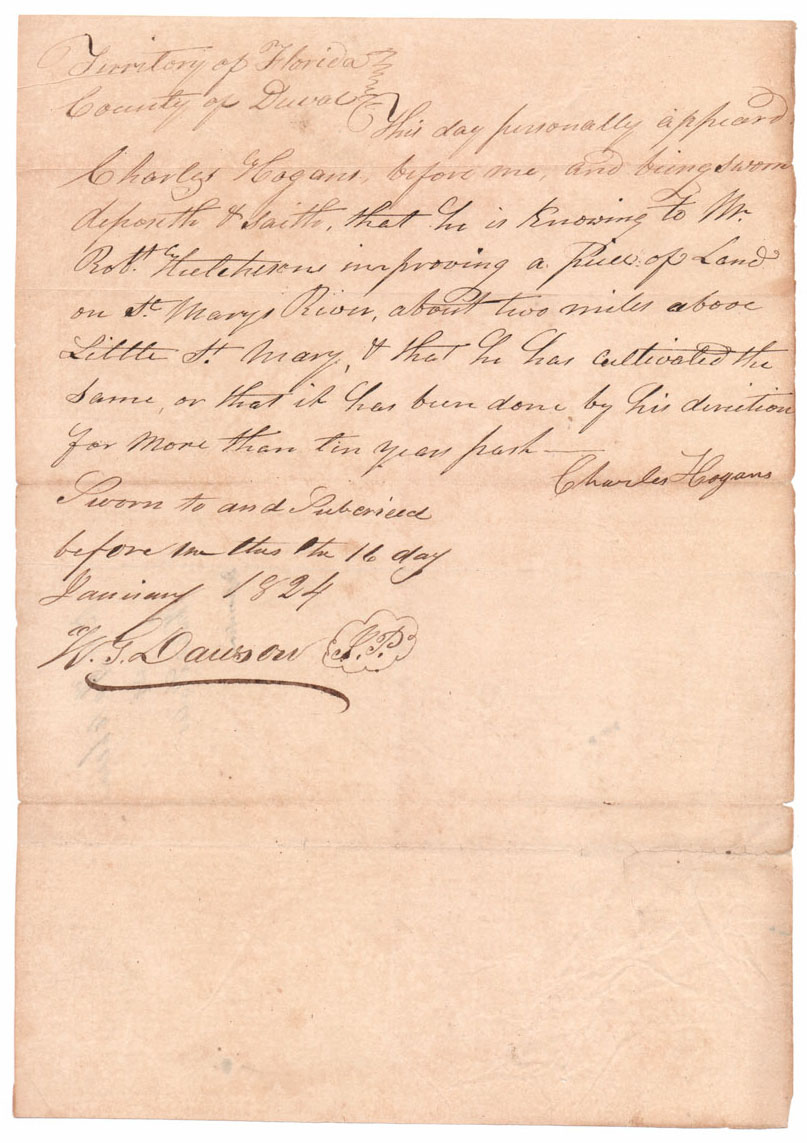 Territory of Florida
County of Duval
This day personally appeard
Charles Hogans, before me, and being sworn
deposeth & saith, that he is Knowing to Mr
Robt. Hutchesons improving a Piece of Land
on St. Marys River, about two miles above
Little St. Mary, & that he has cultivated the
same, or that it has been done by his direction
for more than ten years past —
Charles Hogans
Sworn to and Subcriced
before me this the 16 day
January 1824
W. G. Dawson J.P.